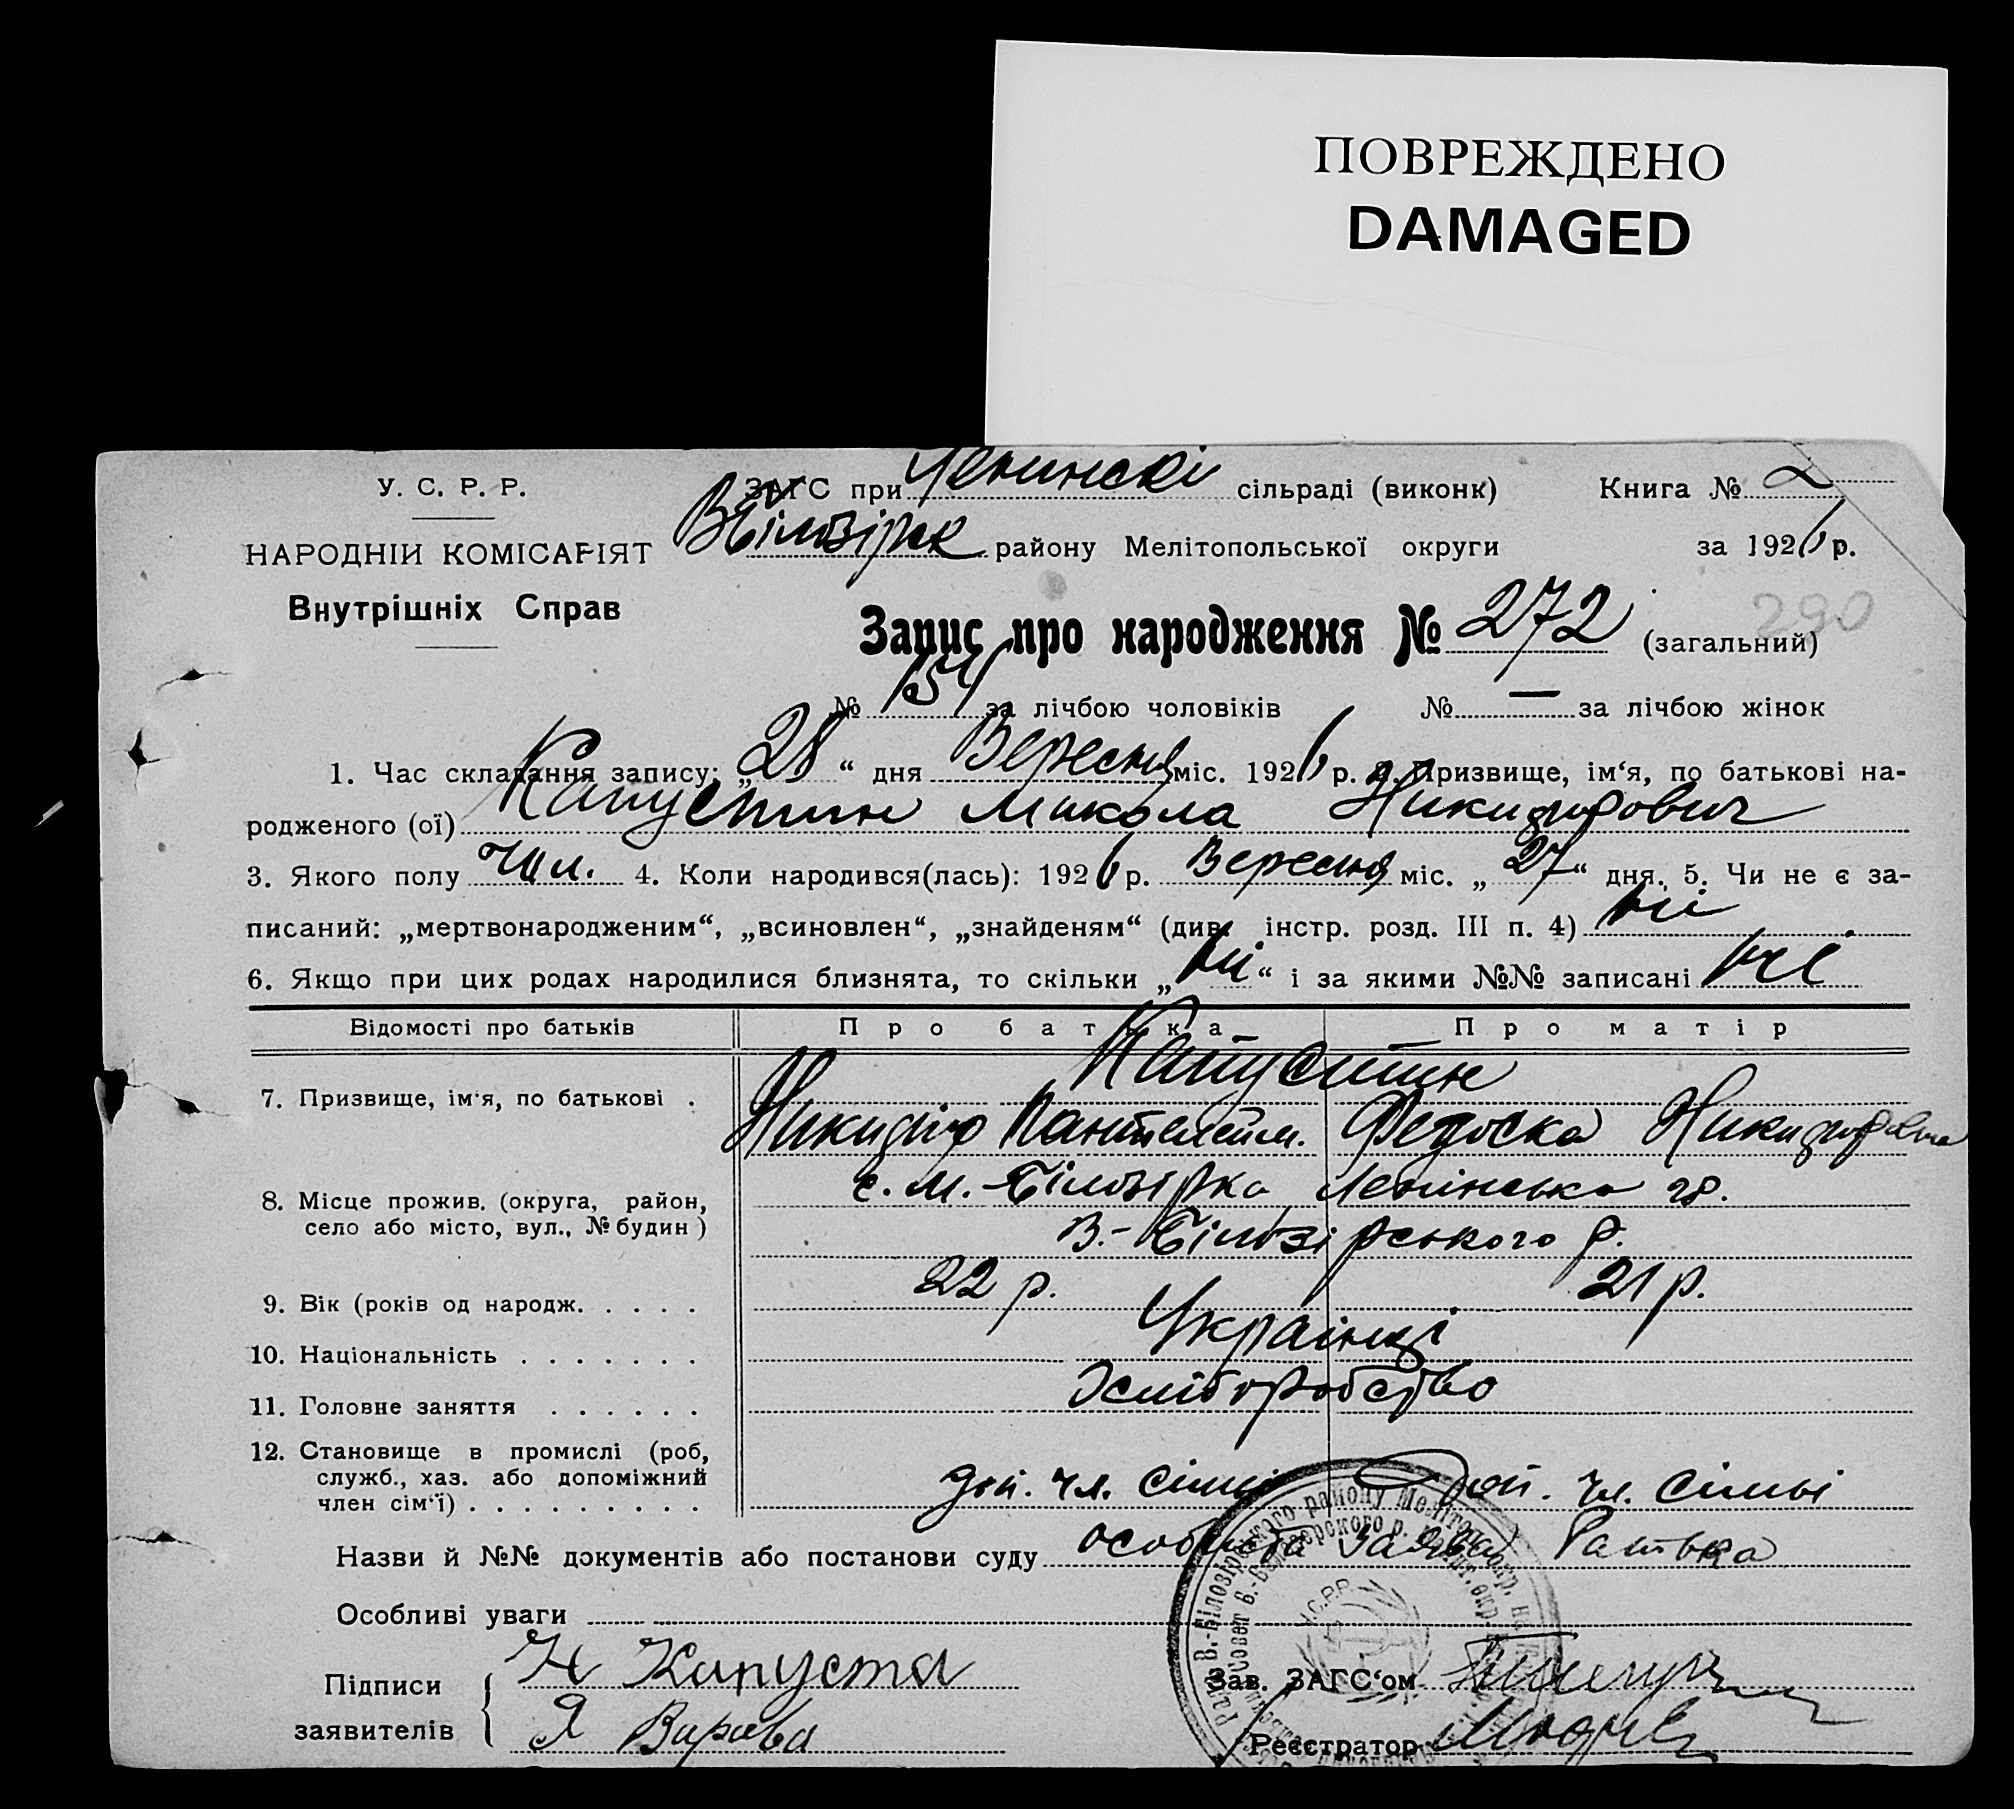 ПОВРЕЖДЕНО
DAMAGED
У. С. Р. Р.
ЗАГС при Ленинскі сільраді (виконк) Книга № 2
НАРОДНІЙ КОМІСАРІЯТ
В Білозірск району Мелітопольської округи за 1926 р.
Внутрішніх Справ
Запис про народження № 272 (загальний)
290
№ 154 за лічбою чоловіків № — за лічбою жінок
1. Час складання запису: „28“ дня Вересня міс. 1926 р. 2. Призвище, ім‘я, по батькові на-
родженого (ої) Капустин Микола Никифорович
3. Якого полу чол. 4. Коли народився(лась): 1926 р. Вересня міс. „27“ дня. 5. Чи не є за-
писаний: „мертвонародженим“, „всиновлен“, „знайденям“ (див. інстр. розд. III п. 4) ні
6. Якщо при цих родах народилися близнята, то скільки „ні“ і за якими №№ записані ні
Відомості про батьків Про батька Про матір
Капустин
7. Призвище, ім‘я, по батькові .
Никифір Пантелейм. Федоска Никифоровна
8. Місце прожив. (округа, район, с. М.-Білозірка Ленінська гр.
село або місто, вул., № будин)
В.-Білозірського р.
9. Вік (років од народж. . . . . 22 р. 21 р.
10. Національність . . . . . . . Українці
11. Головне заняття . . . . . . Хліборобство
12. Становище в промислі (роб,
служб., хаз. або допоміжний
член сім‘ї) . . . . . . . . . доп. чл. сімьі доп. чл. сімьі
Назви й №№ документів або постанови суду особиста заява батька
Особливі уваги
Підписи Н Капуста
Зав. ЗАГС‘ом
заявителів Я Варава
Реєстратор
У.С.Р.Р.